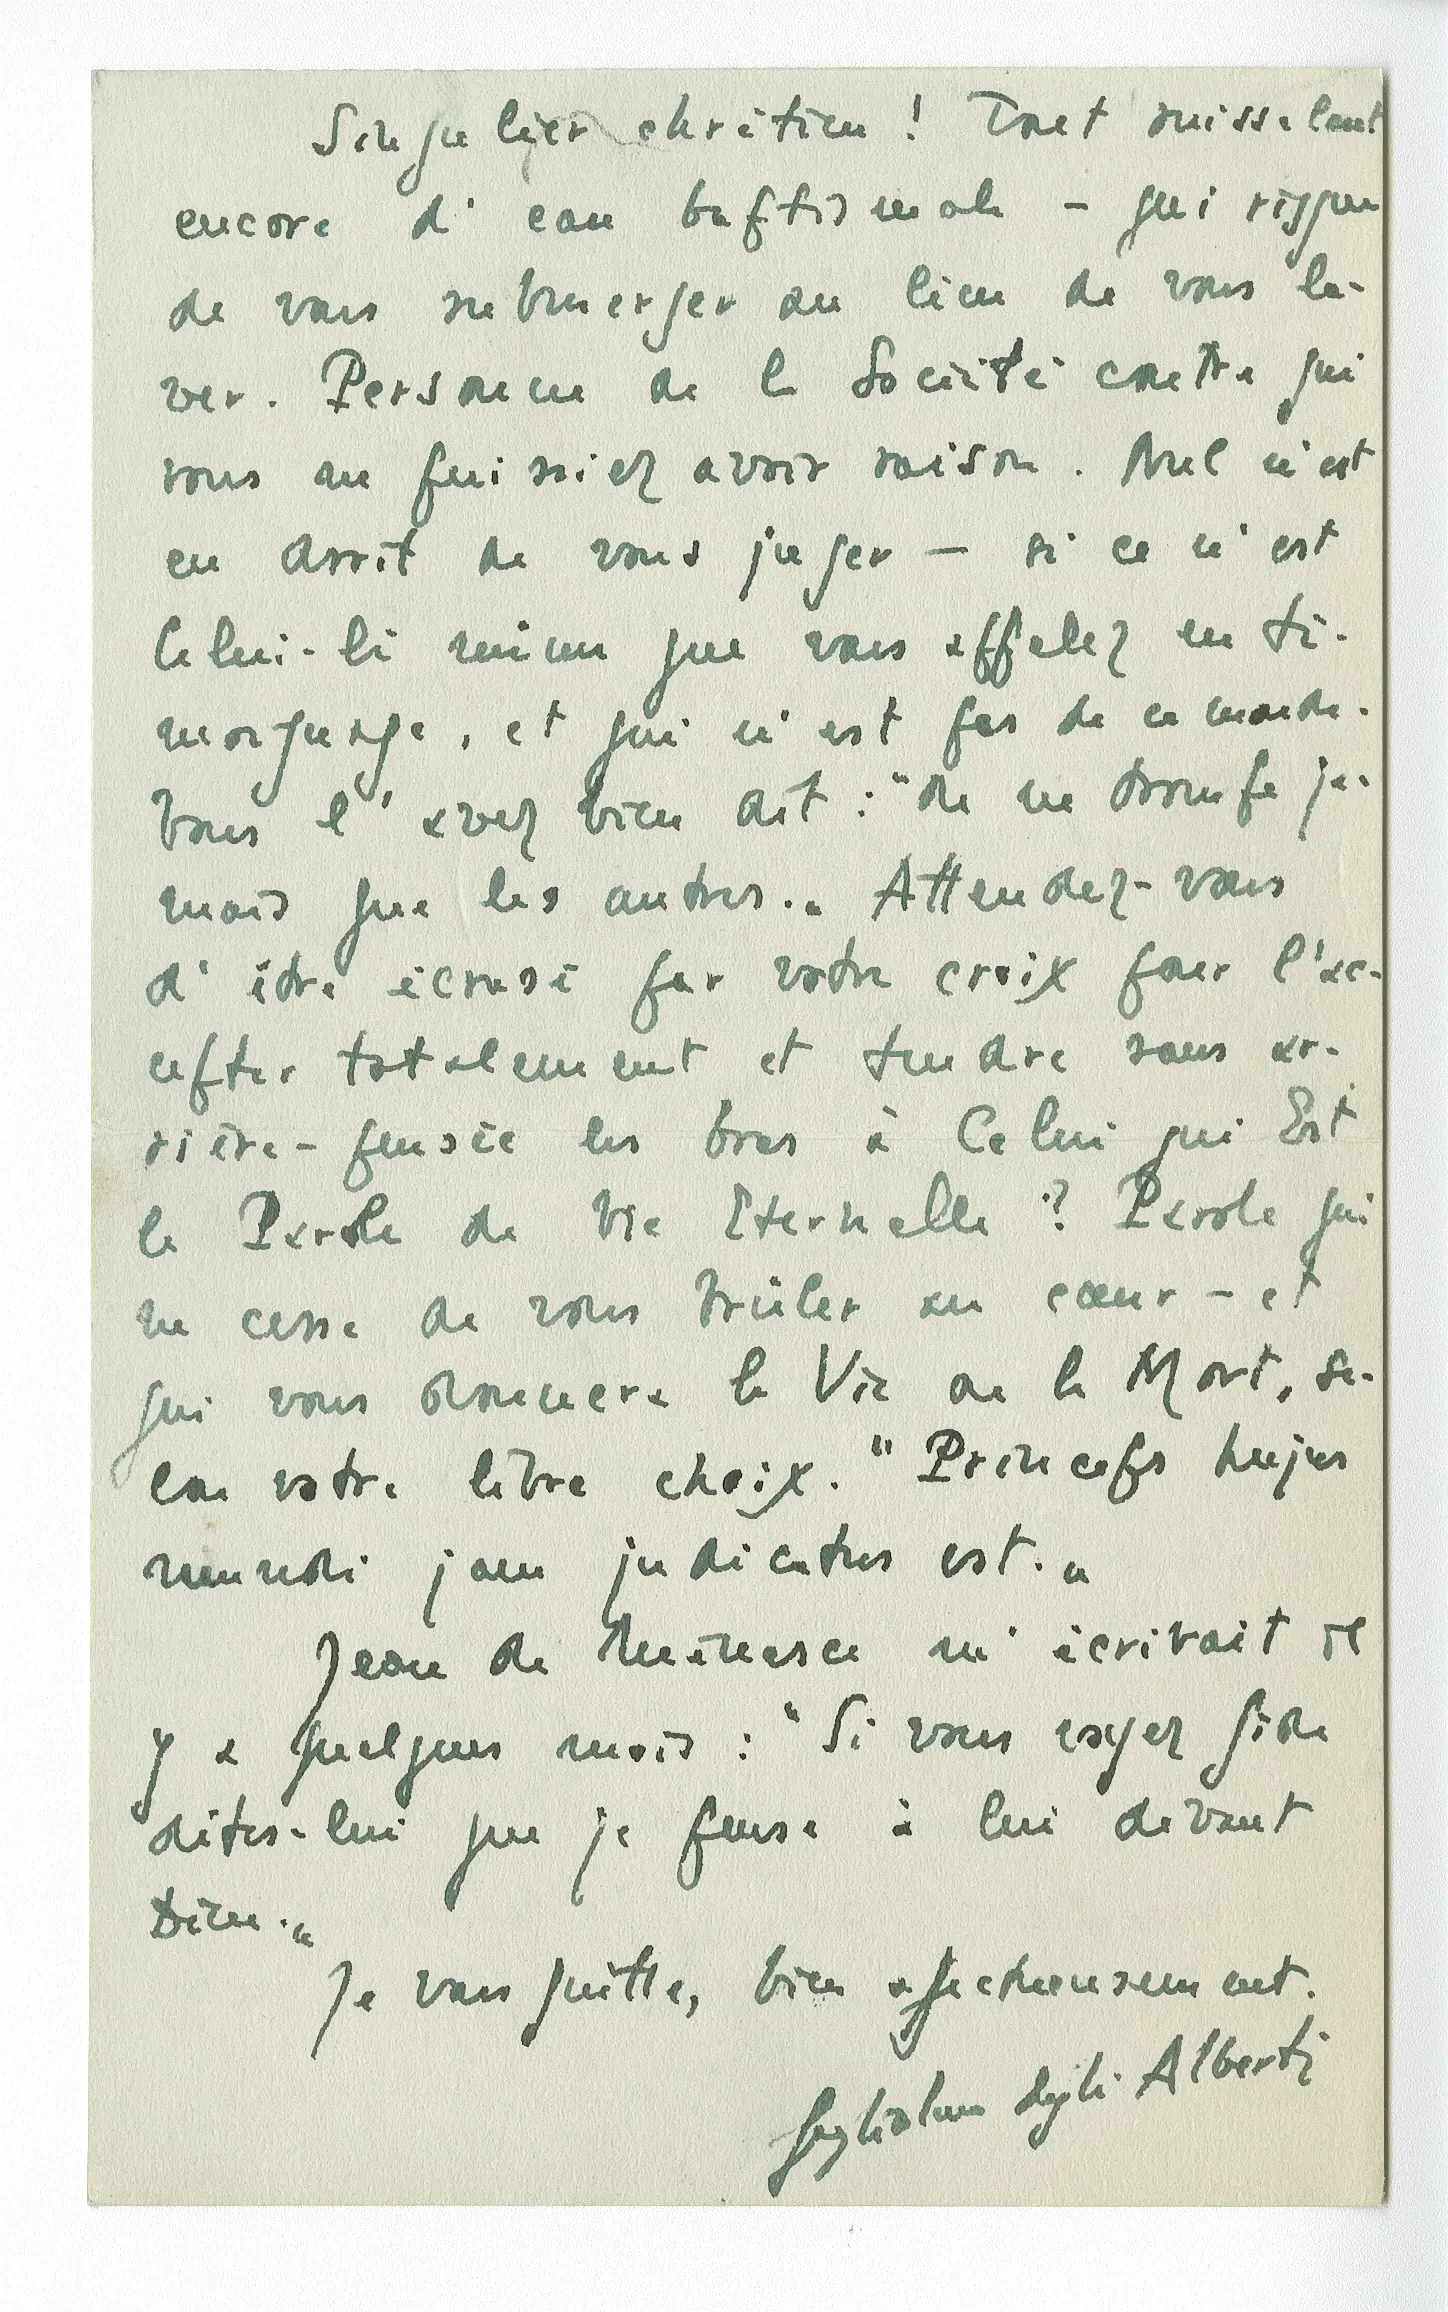 Singulier chrétien ! Tout ruisselant
encore d'eau baptismale – qui risque
de vous submerger au lieu de vous la-
ver. Personne de la Société contre qui
vous ne puissiez avoir raison. Nul n'est
en droit de vous juger – si ce n'est
Celui-là même que vous appelez en té-
moignage, et qui n'est pas de ce monde.
Vous l'avez bien dit : "On ne trompe ja-
mais que les autres.„ Attendez-vous
d'être écrasé par votre croix pour l'ac-
cepter totalement et tendre sans ar-
rière-pensée les bras à Celui qui Est
la Parole de Vie Eternelle ? Parole qui
ne cesse de vous brûler au cœur – et
qui vous donnera la Vie ou la Mort, se-
lon votre libre choix. "Princeps hujus
mundi jam judicatus est.„
Jean de Menasce m'écrivait il
y a quelques mois : "Si vous voyez Gide
dites-lui que je pense à lui devant
Dieu.„
Je vous quitte, bien affectueusement.
Guglielmo degli Alberti